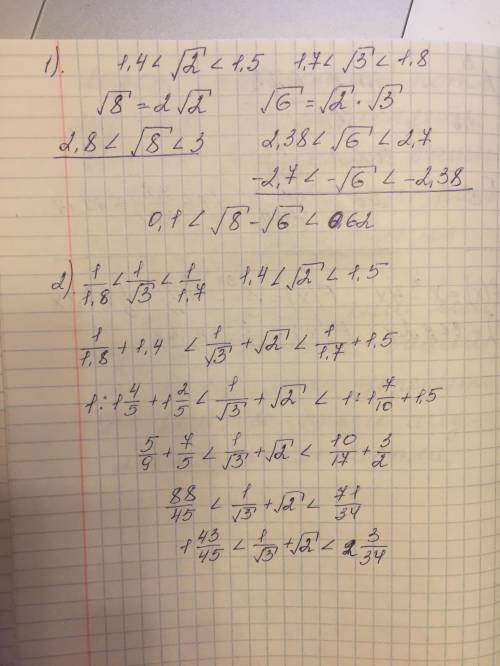 1). 1,4 < √2 < 1,5 1,7 < √3 < 1,8
√8 = 2√2 √6 = √2 · √3
2,8 < √8 < 3 2,38 < √6 < 2,7
-2,7 < -√6 < -2,38
0,1 < √8 - √6 < 0,62
2) 1/1,8 < 1/√3 < 1/1,7 1,4 < √2 < 1,5
1/1,8 + 1,4 < 1/√3 + √2 < 1/1,7 + 1,5
1 : 1 4/5 + 1 2/5 < 1/√3 + √2 < 1 : 1 7/10 + 1,5
5/9 + 7/5 < 1/√3 + √2 < 10/17 + 3/2
88/45 < 1/√3 + √2 < 71/34
1 43/45 < 1/√3 + √2 < 2 3/34